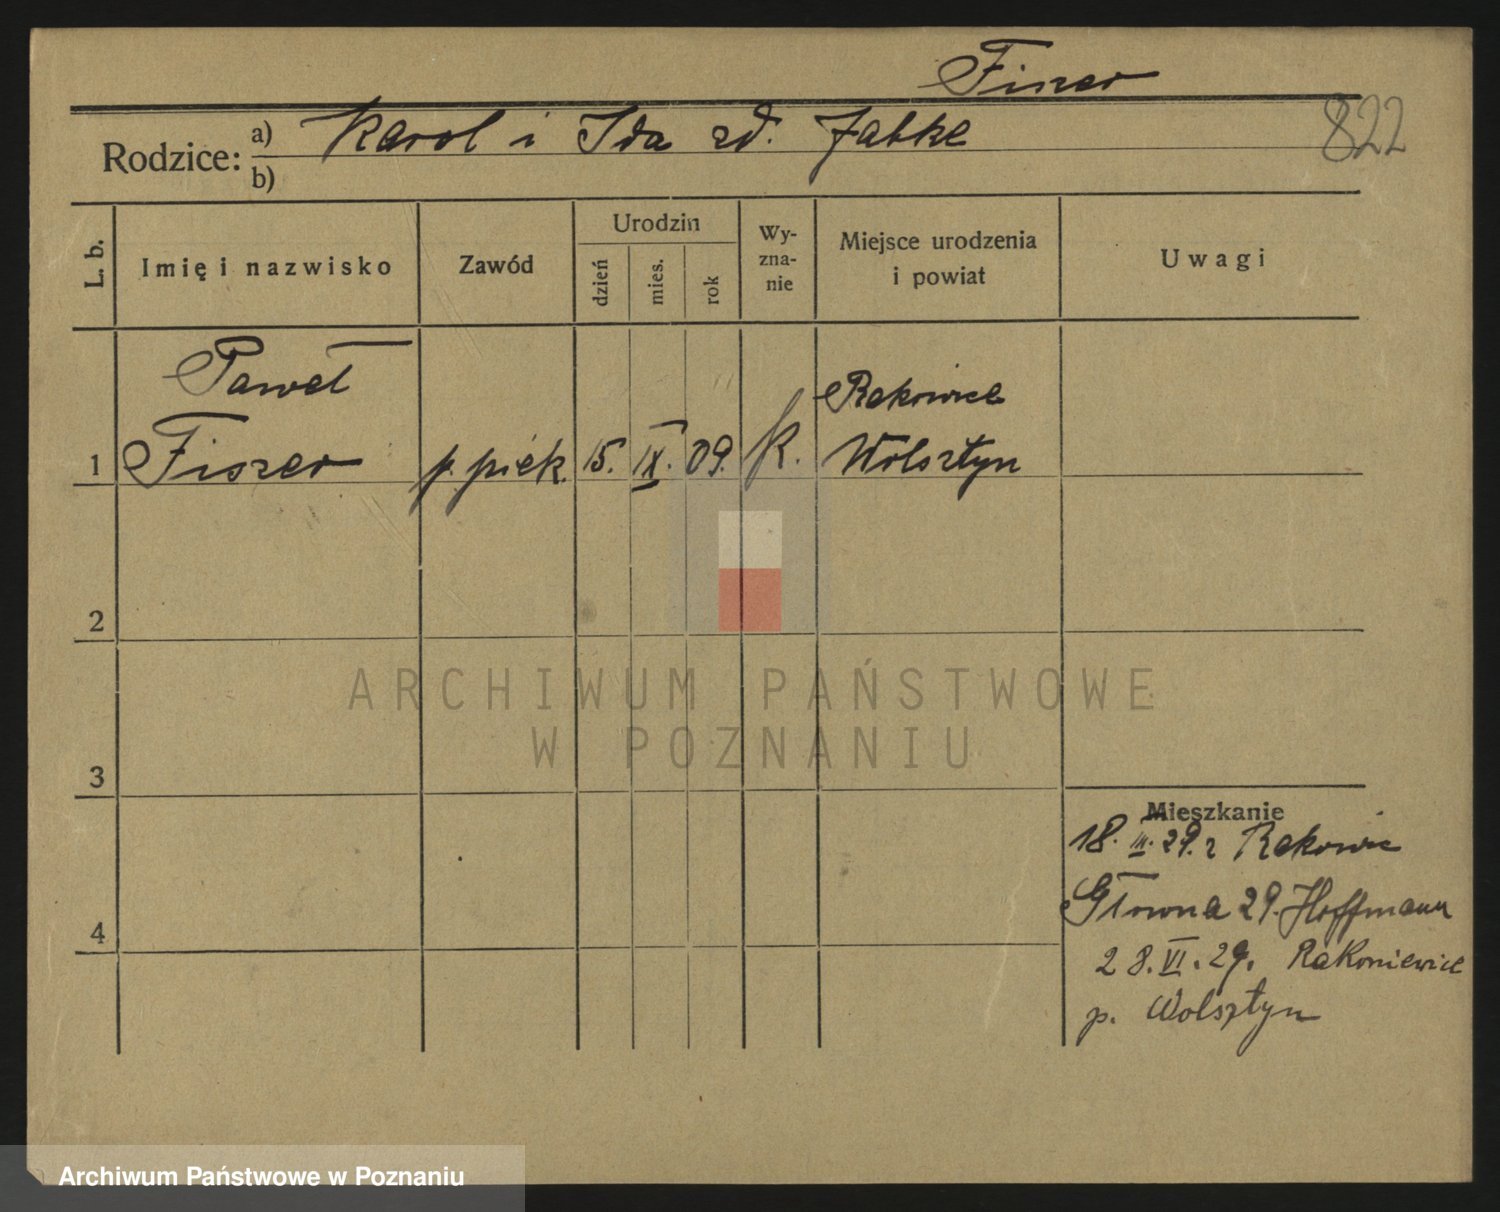 Fiszer
822
Rodzice: a) Karol i Ida zd. Jabke
b)
L. b.
Imię i nazwisko
Zawód
Urodzin
dzień
mies.
rok
Wy-
zna-
nie
Miejsce urodzenia
i powiat
Uwagi
Paweł
Rakowice
1 Fiszer p. piek. 15. IX. 09. k. Wolsztyn
2
ARCHIWUM PAŃSTWOWE
W POZNANIU
3
Mieszkanie
18. III. 29. z Rakowic
Główna 29. Hoffmann
4
28. VI. 29. Rakoniewice
p. Wolsztyn
Archiwum Państwowe w Poznaniu